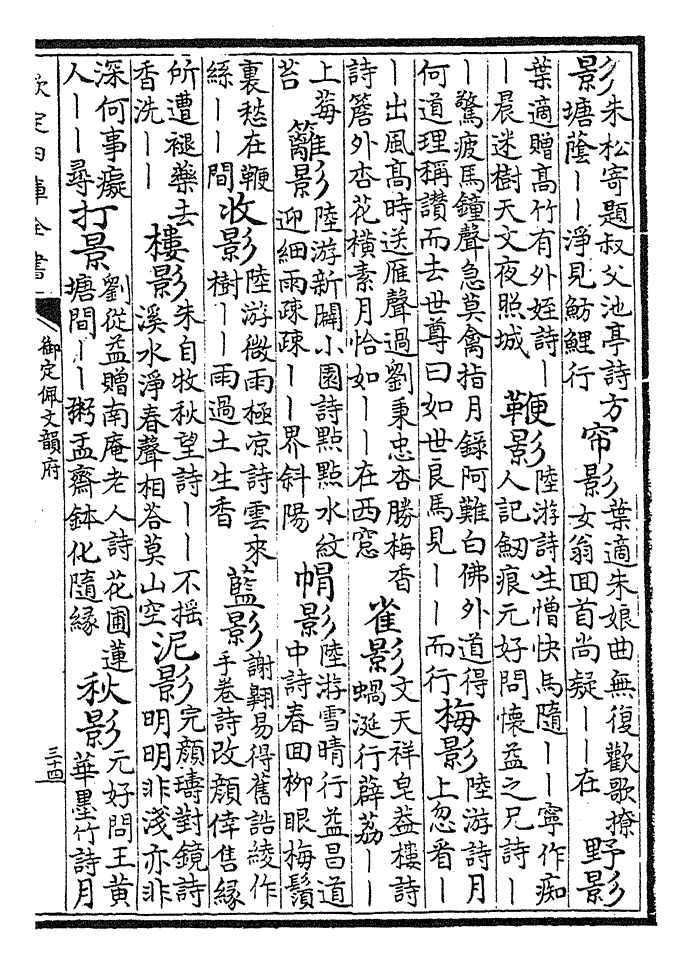 影朱松寄題叔父池亭詩方塘蔭丨丨淨見魴鯉行 帘影葉適朱娘曲無復歡歌撩女翁囬首尚疑丨丨在 野影
葉適贈高竹有外姪詩丨丨晨迷樹天文夜照城 鞭影陸游詩生憎快馬隨丨丨寧作痴人記劒痕元好問懷益之兄詩丨
丨驚疲馬鐘聲急莫禽指月錄阿難白佛外道得何道理稱讃而去世尊曰如世良馬見丨丨而行 梅影陸游詩月上忽看丨
丨出風髙時送雁聲過劉秉忠杏勝梅香詩簷外杏花橫素月恰如丨丨在西窓 雀影文天祥皂葢樓詩蝸涎行薜荔丨丨
上莓苔 籬影陸游新闢小園詩點點水紋迎細雨疎疎丨丨界斜陽 帽影陸游雪晴行益昌道中詩春囬栁眼梅鬚
裏愁在鞭絲丨丨間 收影陸游微雨極凉詩雲來樹丨丨雨過土生香 藍影謝翺易得舊誥綾作手卷詩改顔倖售縁
所遭褪藥去香洗丨丨 樓影朱自牧秋望詩丨丨不揺溪水淨春聲相荅莫山空 泥影完顔璹對鏡詩明明非淺亦非
深何事癡人丨丨尋 打影劉從益贈南庵老人詩花圃蓮塘間丨丨粥盂齋鉢化隨縁 秋影元好問王黄華墨竹詩月
欽定四庫全書
御定佩文韻府
三十四